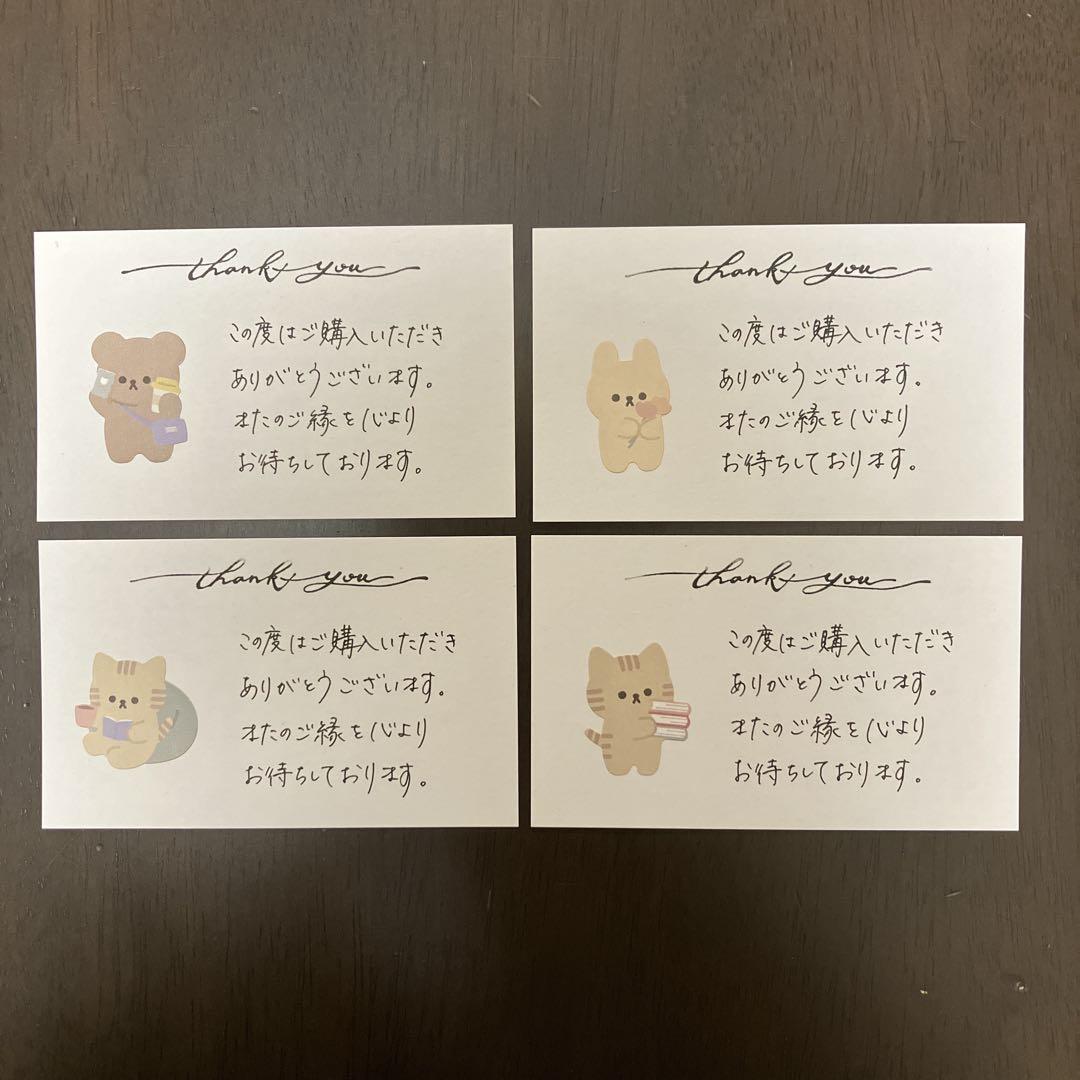 thank you
この度はご購入いただき
ありがとうございます。
またのご縁を心より
お待ちしております。
thank you
この度はご購入いただき
ありがとうございます。
またのご縁を心より
お待ちしております。
thank you
この度はご購入いただき
ありがとうございます。
またのご縁を心より
お待ちしております。
thank you
この度はご購入いただき
ありがとうございます。
またのご縁を心より
お待ちしております。